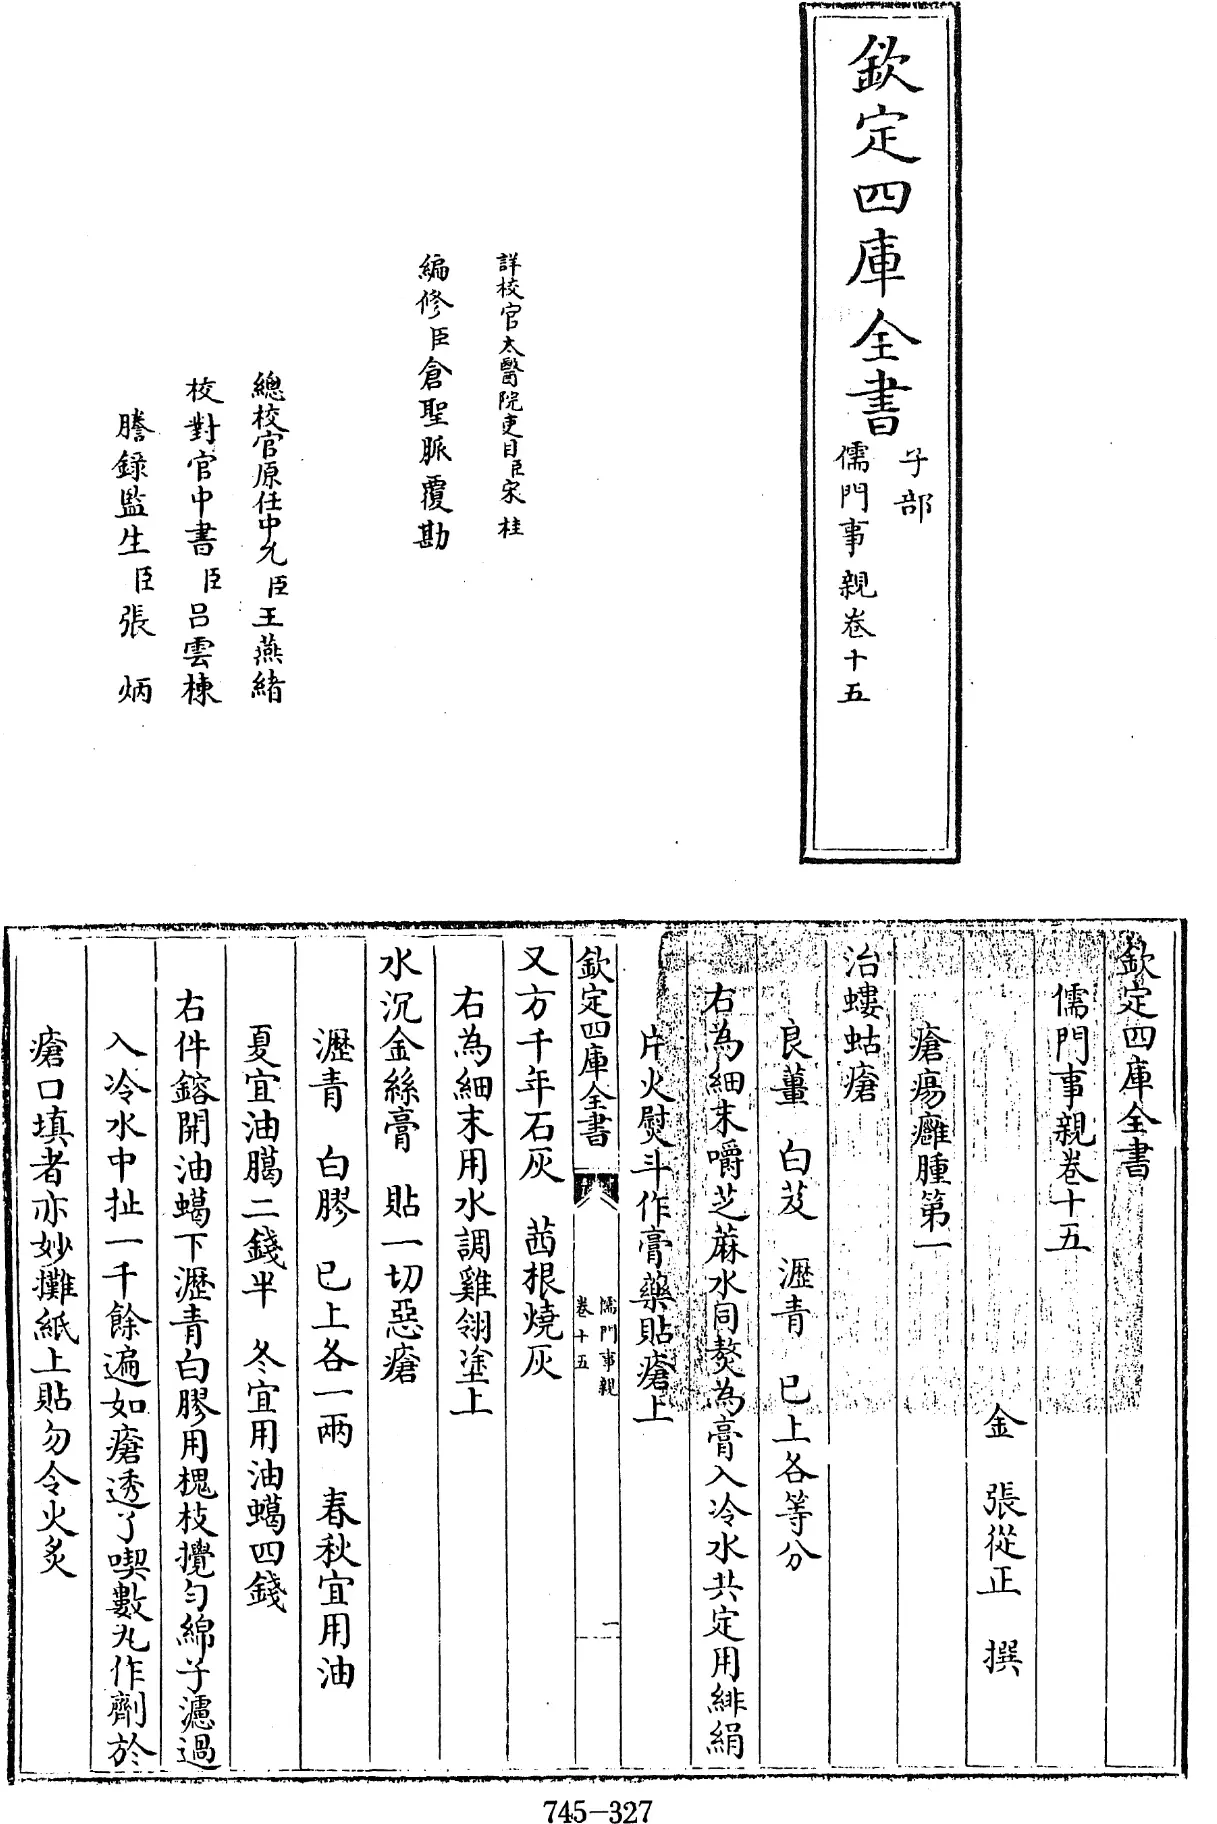 欽定四庫全書
子部
儒門事親卷十五
詳校官太醫院吏目臣宋桂
編修臣倉聖脈覆勘
總校官原任中允臣王燕緒
校對官中書臣呂雲棟
謄錄監生臣張炳
欽定四庫全書
儒門事親卷十五
金 張從正 撰
瘡瘍癰腫第一
治螻蛄瘡
良薑 白芨 瀝青 已上各等分
右為細末嚼芝蔴水同熬為膏入冷水共定用緋絹
片火熨斗作膏藥貼瘡上
欽定四庫全書
儒門事親
卷十五
一
又方千年石灰 茜根燒灰
右為細末用水調雞翎塗上
水沉金絲膏 貼一切惡瘡
瀝青 白膠 已上各一兩 春秋宜用油
夏宜油臈二錢半 冬宜用油蠟四錢
右件鎔開油蠟下瀝青白膠用槐枝攪勻綿子濾過
入冷水中扯一千餘遍如瘡透了喫數丸作劑於
瘡口填者亦妙攤紙上貼勿令火炙
745-327